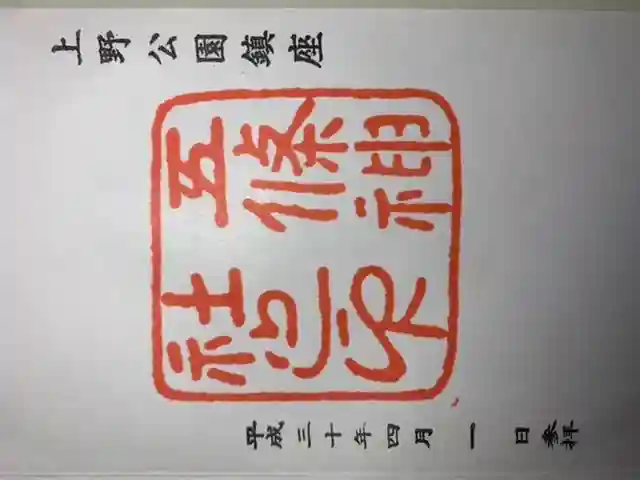 上野公園鎮座
五條神
社之印
平成三十年四月一日参拝